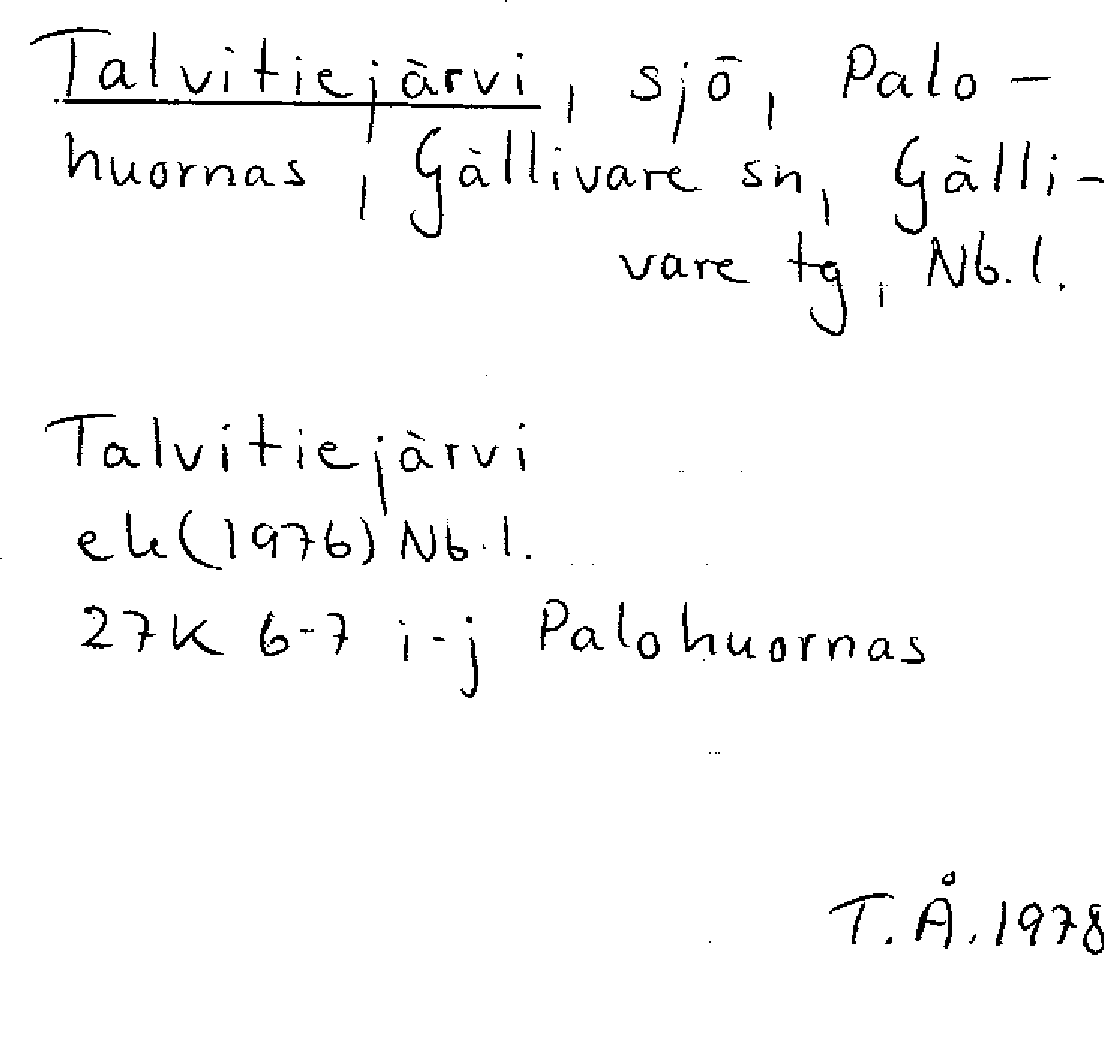 Talvitiejärvi, sjö, Palo-
huornas, Gällivare sn, Gälli-
vare tg, Nb.l.
Talvitiejärvi
ek (1976) Nb.l.
27K 6-7 i-j Palohuornas
T.Å. 1978